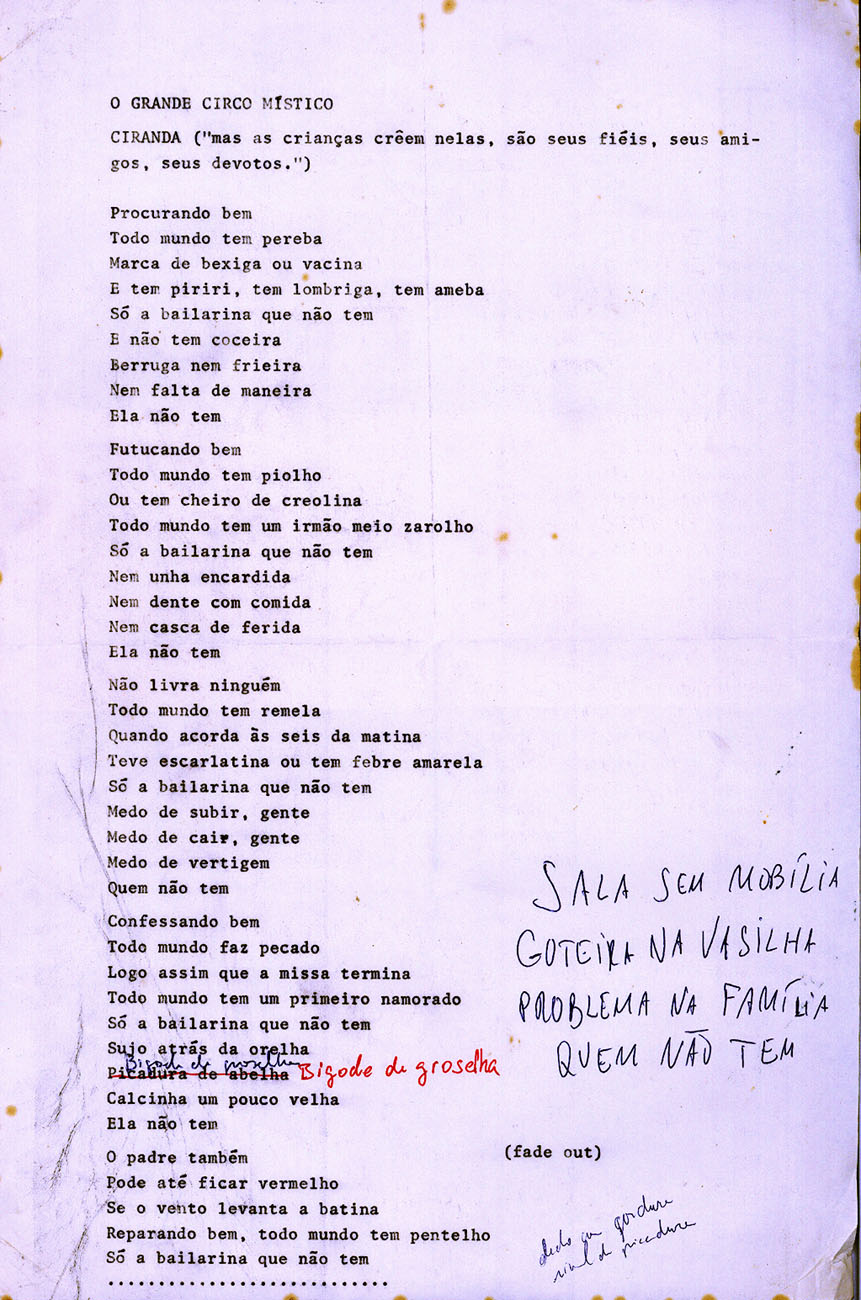 O GRANDE CIRCO MÍSTICO
CIRANDA ("mas as crianças crêem nelas, são seus fiéis, seus ami-
gos, seus devotos.")
Procurando bem
Todo mundo tem pereba
Marca de bexiga ou vacina
E tem piriri, tem lombriga, tem ameba
Só a bailarina que não tem
E não tem coceira
Berruga nem frieira
Nem falta de maneira
Ela não tem
Futucando bem
Todo mundo tem piolho
Ou tem cheiro de creolina
Todo mundo tem um irmão meio zarolho
Só a bailarina que não tem
Nem unha encardida
Nem dente com comida
Nem casca de ferida
Ela não tem
Não livra ninguém
Todo mundo tem remela
Quando acorda às seis da matina
Teve escarlatina ou tem febre amarela
Só a bailarina que não tem
Medo de subir, gente
Medo de cair, gente
Medo de vertigem
Quem não tem
Confessando bem
Todo mundo faz pecado
Logo assim que a missa termina
Todo mundo tem um primeiro namorado
Só a bailarina que não tem
Sujo atrás da orelha
Bigode de groselha
Picadura de abelha Bigode de groselha
Calcinha um pouco velha
Ela não tem
SALA SEM MOBÍLIA
GOTEIRA NA VASILHA
PROBLEMA NA FAMÍLIA
QUEM NÃO TEM
O padre também
(fade out)
Pode até ficar vermelho
Se o vento levanta a batina
Reparando bem, todo mundo tem pentelho
Só a bailarina que não tem
...........................
dedo com gordura
sinal de picadura